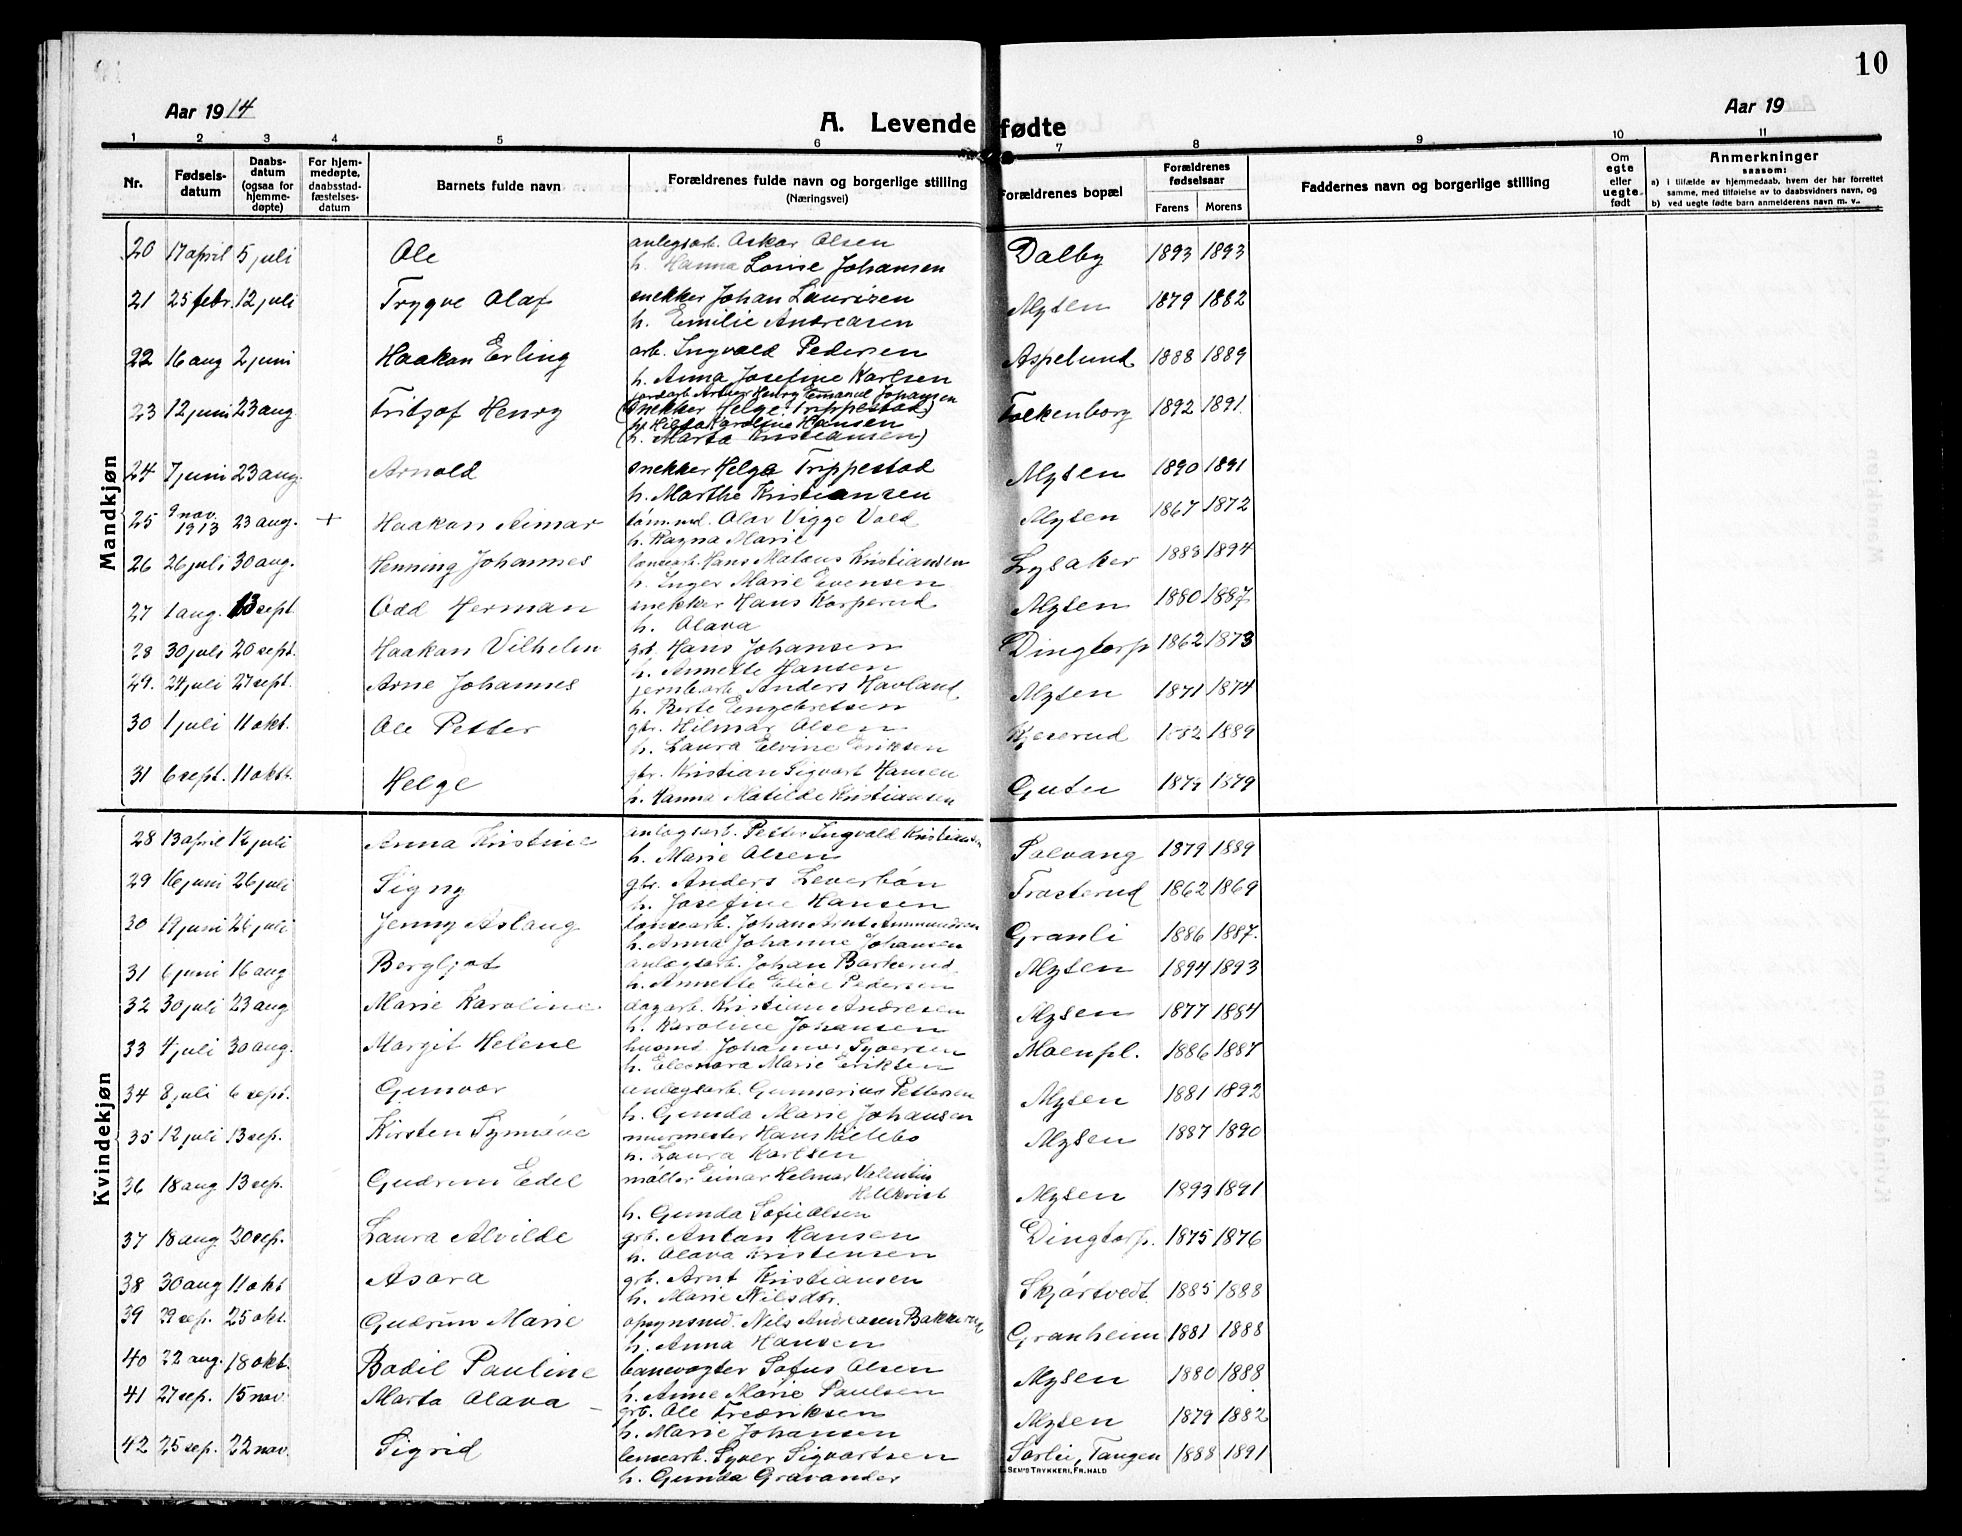 10
Aar 1914
A. Levende fødte
Aar 19
1 2 3 4 5 6 7 8 9 10 11
Nr.
Fødsels-
datum
Daabs-
datum
(ogsaa for
hjemme-
døpte)
For hjem-
medøpte,
daabsstad-
fæstelses-
datum
Barnets fulde navn
Forældrenes fulde navn og borgerlige stilling
(Næringsvei)
Forældrenes bopæl
Forældrenes
fødselsaar
Farens Morens
Faddernes navn og borgerlige stilling
Om
egte
eller
uegte
født
Anmerkninger
saasom:
a) i tilfælde av hjemmedaab, hvem der har forrettet
samme, med tilføielse av to daabsvidners navn, og
b) ved uegte fødte barn anmelderens navn m. v.
Mandkjøn
20 17 april 5 juli Ole anlegsarb. Oskar Olsen Dalby 1893 1893
h. Hanna Lovise Johansen
21 25 febr. 12 juli Trygve Olaf snekker Johan Laurizen Mysen 1879 1882
h. Emilie Andreasen
22 16 aug 2 juni Haakon Erling arb. Ingvald Pedersen Aspelund 1888 1889
h. Anna Josefine Karlsen
jordarb. Artur Henry Emanuel Johansen
23 12 juni 23 aug Fritjof Henry (snekker Helge Trippestad) Folkenborg 1892 1891
h. Hilda Karoline Hansen
(h. Marta Kristiansen)
24 7 juni 23 aug. Arnold snekker Helge Trippestad Mysen 1890 1891
h. Marthe Kristiansen
25 9 nov. 1913 23 aug. + Haakon Aimar tømmd. Olav Vigge Vold Mysen 1867 1872
h. Ragna Marie
26 26 juli 30 aug. Henning Johannes Hans Mataus Kristiansen Lysaker 1883 1894
h. Inger Marie Evensen
27 1 aug. 13 sept Odd Herman snekker Hans Korperud Mysen 1880 1887
h. Olava
28 30 juli 20 sept. Haakon Vilhelm grb. Hans Johansen Dingtorp 1862 1873
h. Annette Hansen
29. 24 juli 27 sept. Arne Johannes jernbarb. Anders Havland Mysen 1871 1874
h. Berte Engebretsen
30 1 juli 11 okt. Ole Petter gbr. Hilmar Olsen 1882 1889
h. Laura Elvine Eriksen
31 6 sept. 11 okt. Helge gbr. Kristian Sigvart Hansen Gutu 1879 1879
h. Hanna Matilde Kristiansen
Kvindekjøn
28 13 april 12 juli Anna Kristine anlegsarb. Petter Ingvald Kristiansen Solvang 1879 1889
h. Marie Olsen
29 16 juni 26 juli Signy gbr. Anders Leverbøn Trosterud 1862 1869
h. Josefine Hansen
30 19 juni 26 juli Jenny Aslaug Johan Arnt Ammundsen Granli 1886 1887.
h. Anna Johanne Johansen
31 6 juni 16 aug Bergljot anlegsarb. Johan Barkerud Mysen 1894 1893
h. Annette Elise Pedersen
32 30 juli 23 aug Marie Karoline dagarb. Kristian Andresen Mysen 1877 1884
h. Karoline Johansen
33 4 juli 30 aug. Margit Helene husmd. Johannes Syversen Moenpl. 1886 1887
h. Eleonora Marie Eriksen
34 8 juli 6 sept. Gunvor anlegsarb. Gunnerius Pettersen Mysen 1881 1892
h. Gunda Marie Johansen
35 12 juli 13 sep. Kirsten Synnøve murmester Hans Kielebo Mysen 1887 1890
h. Laura Karlsen
36 18 aug 13 sep. Gudrun Edel møller Einar Helmar Valentin Mysen 1893 1891
Hellkvist
h. Gunda Sofie Olsen
37 18 aug 20 sep. Laura Alvilde grb. Anton Hansen Dingtorp. 1875 1876
h. Olava Kristensen
38 30 aug 11 okt Asora grb. Arnt Kristiansen Skjørtvedt 1885 1888
h. Marie Nilsdtr.
39 29 sep. 25 okt. Gudrun Marie opsynsmd. Nils Andreasen Bakkerud Granheim 1881 1888
h. Anna Hansen
40 22 aug. 18 okt. Bodil Pauline banevogter Sofus Olsen Mysen 1880 1888
h. Anne Marie Paulsen
41 27 sep. 15 nov. Marta Olava grb. Ole Fredriksen Mysen 1879 1882
h. Marie Johansen
42 25 sep. 22 nov. Sigrid Syver Sigvartsen Sorlie, Tangen 1888 1891
h. Gunda Gravander
SEN'S TRYKKERI, FR.HALD